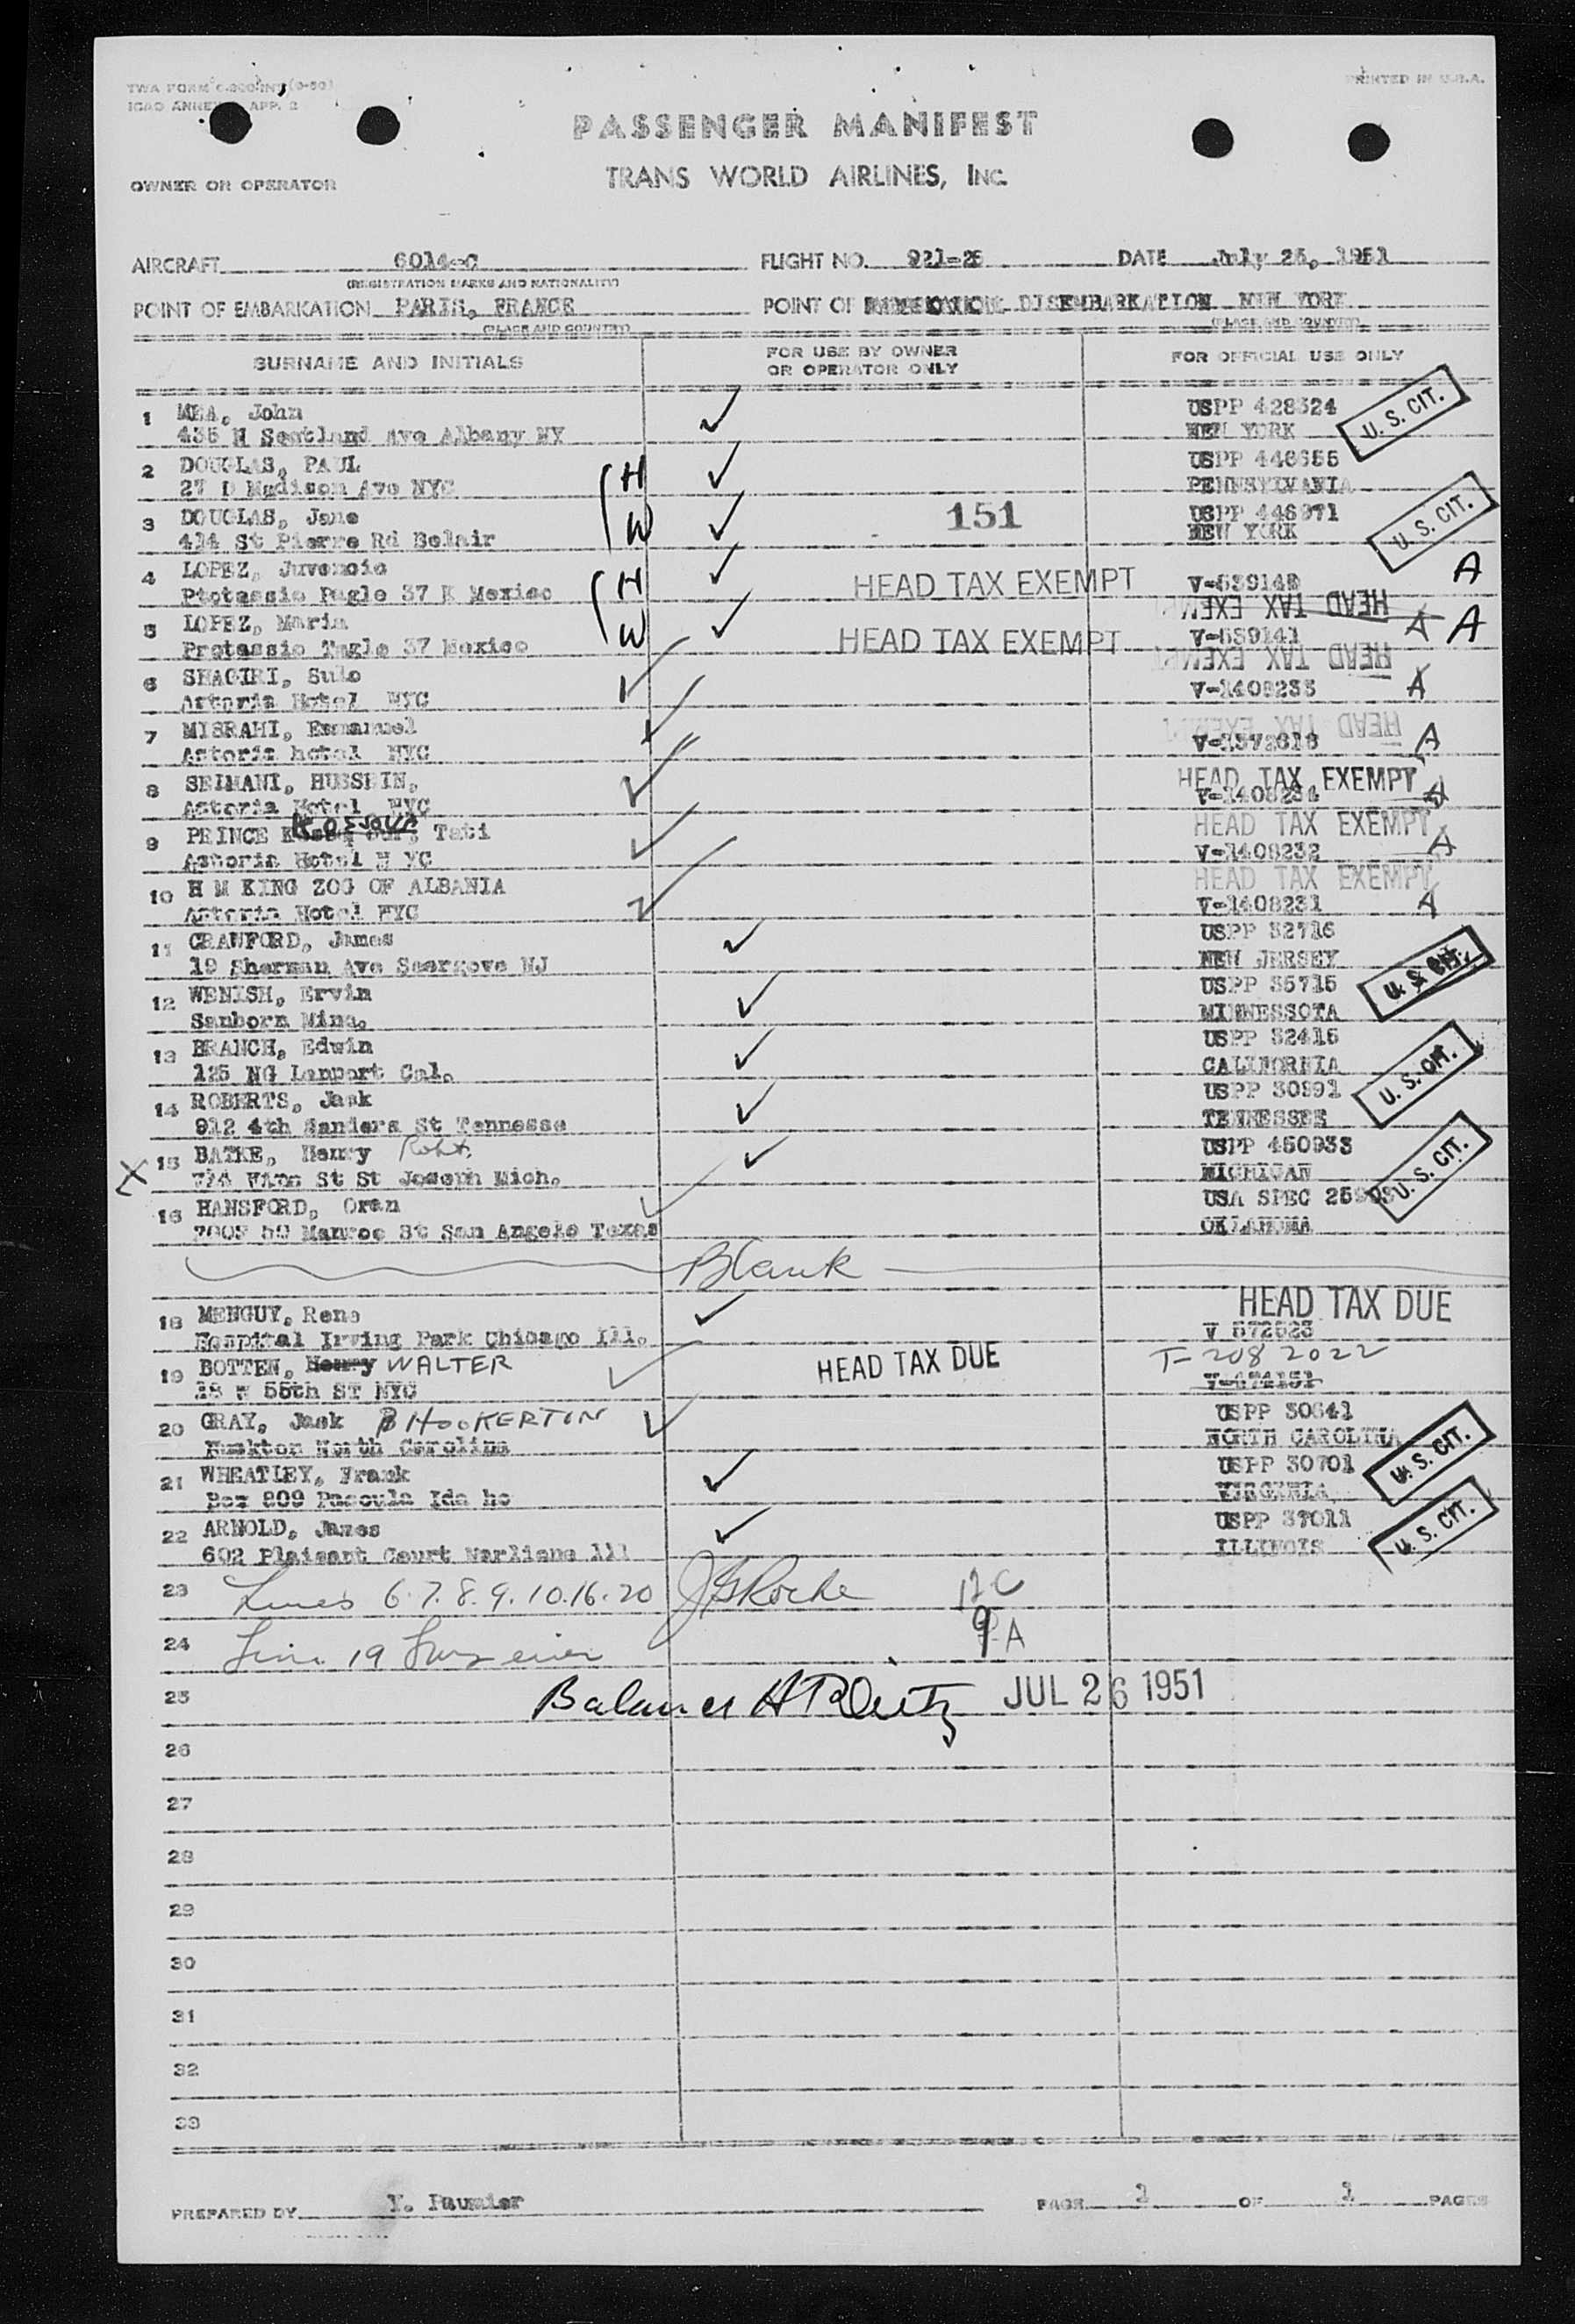 TWA FORM
ICAO ANNEX APP. 2
PRINTED IN U.S.A.
PASSENGER MANIFEST
TRANS WORLD AIRLINES, INC.
OWNER OR OPERATOR
AIRCRAFT 6014-C FLIGHT NO. 921-25 DATE July 25, 1951
(REGISTRATION MARKS AND NATIONALITY)
POINT OF EMBARKATION PARIS, FRANCE POINT OF DISEMBARKATION NEW YORK
(PLACE AND COUNTRY) (PLACE AND COUNTRY)
SURNAME AND INITIALS FOR USE BY OWNER OR OPERATOR ONLY FOR OFFICIAL USE ONLY
1 MEA, John USPP 428324 U. S. CIT.
435 N Scotland Ave Albany NY NEW YORK
2 DOUGLAS, PAUL H USPP 446655
27 D Madison Ave NYC PENNSYLVANIA
3 DOUGLAS, Jane W 151 USPP 446971 U. S. CIT.
414 St Pierre Rd Belair NEW YORK
4 LOPEZ, Juvencio H HEAD TAX EXEMPT V-639140 A
Ptotassio Pagle 37 K Mexico HEAD TAX EXEMPT
5 LOPEZ, Maria W HEAD TAX EXEMPT V-639141 A A
Protassio Tagle 37 Mexico HEAD TAX EXEMPT
6 SHAGIRI, Sulo
Astoria Hotel NYC V-1408233 A
7 MISRAHI, Emmanuel HEAD TAX EXEMPT
Astoria hotel NYC V-1372618 A
8 SEIMANI, HUSSEIN, HEAD TAX EXEMPT
Astoria Hotel NYC V-1408234 A
9 PRINCE KOSSOVA Tati HEAD TAX EXEMPT
Astoria Hotel N YC V-1408232 A
10 H M KING ZOG OF ALBANIA HEAD TAX EXEMPT
Astoria Hotel NYC V-1408231 A
11 CRAWFORD, James USPP 32716
19 Sherman Ave Seargove NJ NEW JERSEY U. S. CIT.
12 WENISH, Ervin USPP 35715
Sanborn Minn. MINNESSOTA
13 BRANCH, Edwin USPP 32415
125 NG Lanport Cal. CALIFORNIA U. S. CIT.
14 ROBERTS, Jack USPP 30891
912 4th Sanders St Tennesse TENNESSEE
X 15 BATKE, Henry Robt. USPP 450933 U. S. CIT.
Vine St St Joseph Mich. MICHIGAN
16 HANSFORD, Oran USA SPEC
Manroe St San Angelo Texas OKLAHOMA
Blank
18 MENGUY, Rene HEAD TAX DUE
Hospital Irving Park Chicago Ill. V 572523
19 BOTTEN, Henry WALTER HEAD TAX DUE T-208 2022
18 W 55th ST NYC V-474151
20 GRAY, Jack B HOOKERTON USPP 30641
North Carolina NORTH CAROLINA U. S. CIT.
21 WHEATLEY, Frank USPP 30701
Box 809 Pascula Ida ho VIRGINIA
22 ARNOLD, James USPP 37011 U. S. CIT.
602 Plaisant Court Marliane Ill ILLINOIS
23 Lines 6.7.8.9.10.16.20 J G Roche 12 C
24 Line 19 9 A
25 Balance JUL 26 1951
26
27
28
29
30
31
32
33
PREPARED BY Y. Paumier PAGE 1 OF 1 PAGES